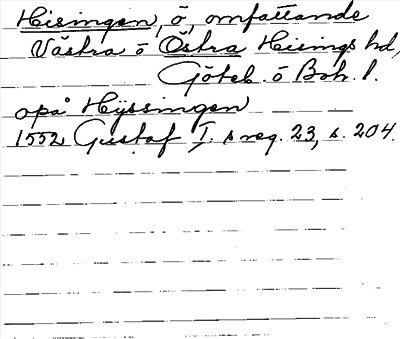 Hisingen, ö, omfattande
Västra o Östra Hisings hd,
Göteb. o Boh. l.
opå Hÿssingen
1552 Gustaf I:s reg. 23, s. 204.